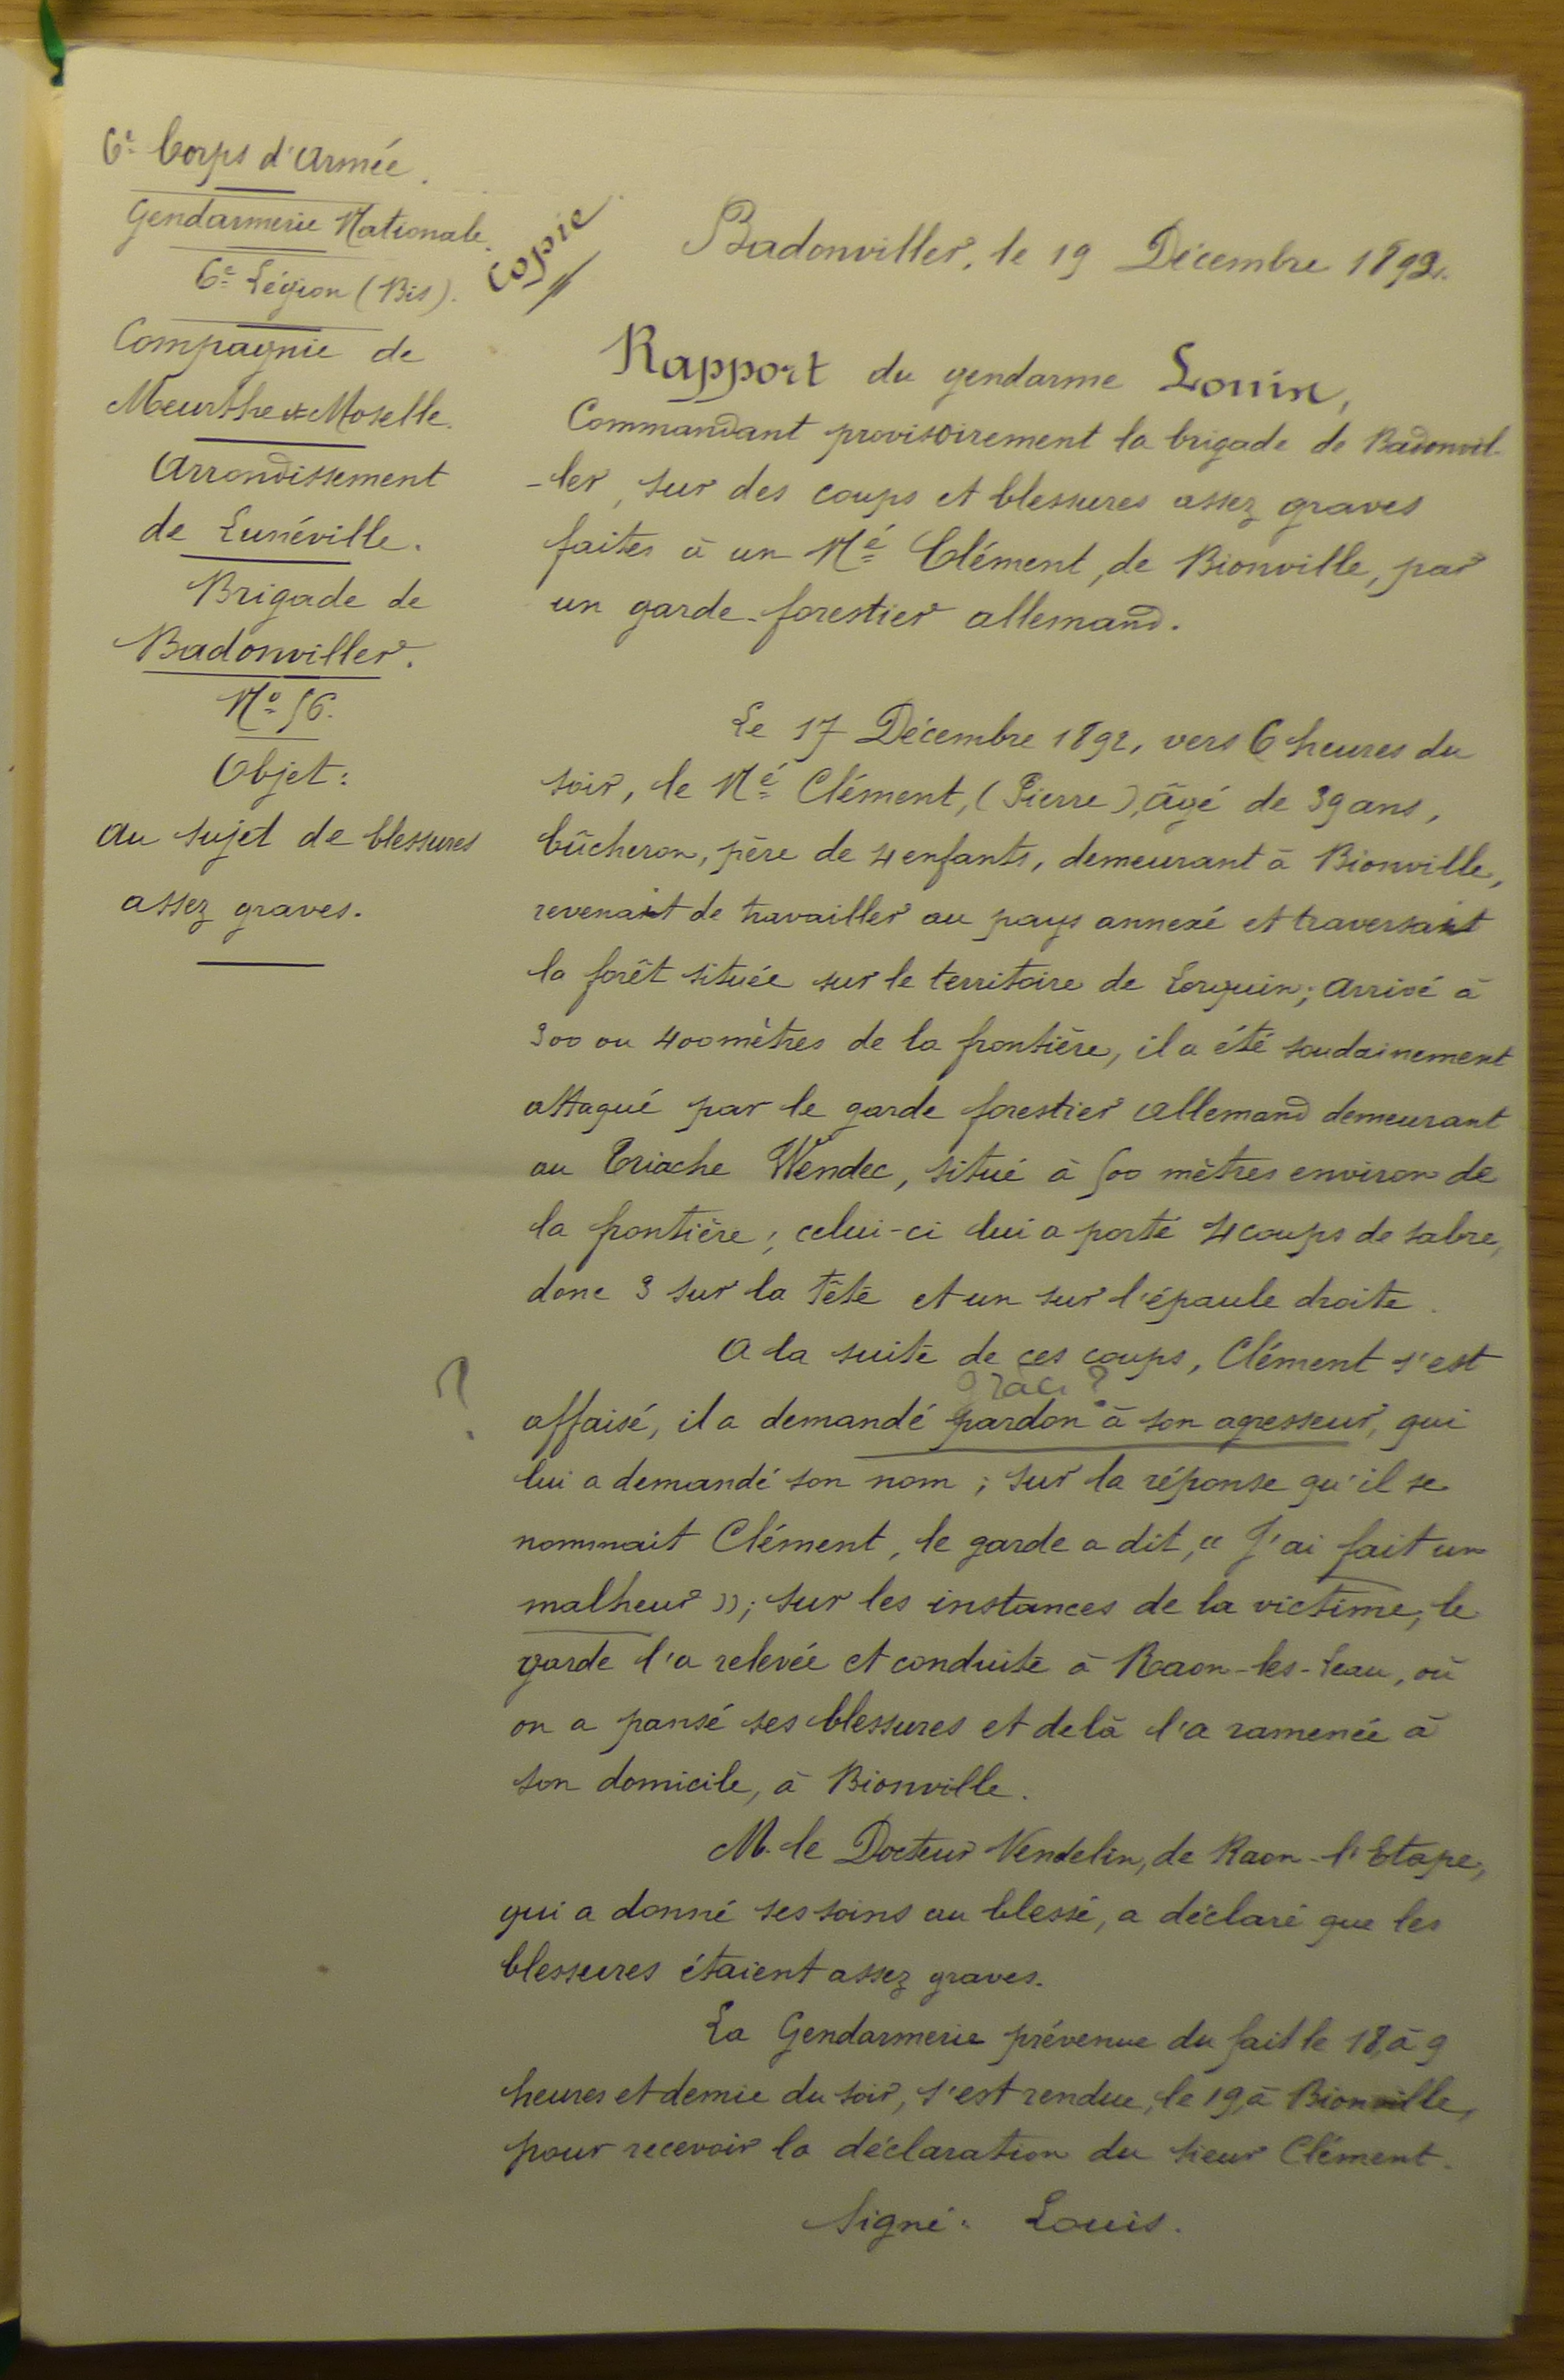 6e Corps d'Armée.
Gendarmerie Nationale.
6e Légion (Bis).
Compagnie de
Meurthe & Moselle.
Arrondissement
de Lunéville.
Brigade de
Badonviller.
No 56.
Objet :
au sujet de blessures
assez graves.
Copie
Badonviller, le 19 Décembre 1892.
Rapport du gendarme Louis,
Commandant provisoirement la brigade de Badonvil-
-ler, sur des coups et blessures assez graves
faites à un Né Clément, de Bionville, par
un garde-forestier allemand.
Le 17 Décembre 1892, vers 6 heures du
soir, le Né Clément, (Pierre), âgé de 39 ans,
bûcheron, père de 4 enfants, demeurant à Bionville,
revenait de travailler au pays annexé et traversait
la forêt située sur le territoire de Lorquin; arrivé à
300 ou 400 mètres de la frontière, il a été soudainement
attaqué par le garde forestier allemand demeurant
au Criache Wendec, situé à 500 mètres environ de
la frontière; celui-ci lui a porté 4 coups de sabre,
donc 3 sur la tête et un sur l'épaule droite.
A la suite de ces coups, Clément s'est
grace ?
?
affaisé, il a demandé pardon à son agresseur, qui
lui a demandé son nom ; sur la réponse qu'il se
nommait Clément, le garde a dit, « J'ai fait un
malheur »; sur les instances de la victime, le
garde l'a relevée et conduite à Raon-les-Leau, où
on a pansé ses blessures et delà l'a ramenée à
son domicile, à Bionville.
M. le Docteur Vendelin, de Raon-l'Etape,
qui a donné ses soins au blessé, a déclaré que les
blessures étaient assez graves.
La Gendarmerie prévenue du fait le 18, à 9
heures et demie du soir, s'est rendue, le 19, à Bionville,
pour recevoir la déclaration du sieur Clément.
Signé : Louis.